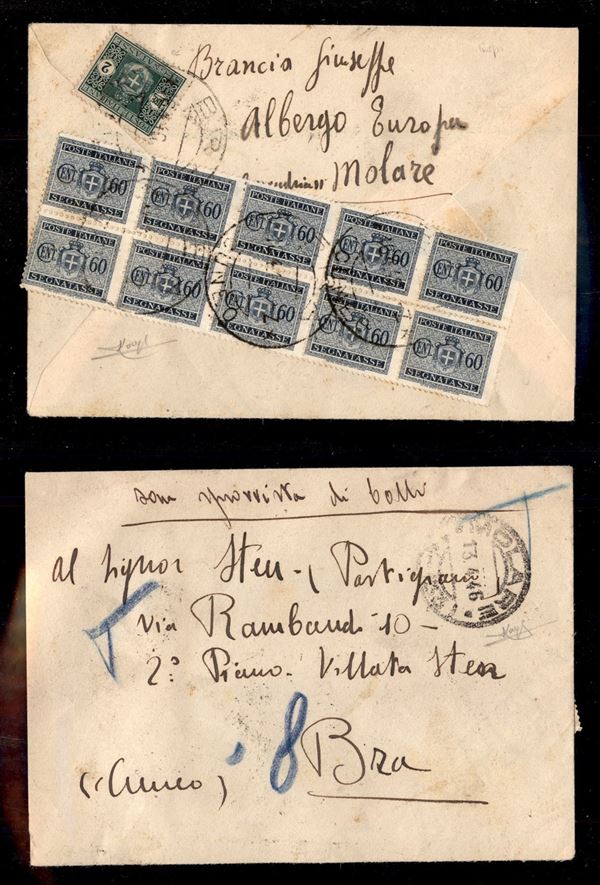 Brancia Giuseppe
Albergo Europa
Molare
2
POSTE ITALIANE POSTE ITALIANE POSTE ITALIANE POSTE ITALIANE POSTE ITALIANE
CENT 60 CENT 60 CENT 60 CENT 60 CENT 60
SEGNATASSE SEGNATASSE SEGNATASSE SEGNATASSE SEGNATASSE
POSTE ITALIANE POSTE ITALIANE POSTE ITALIANE POSTE ITALIANE POSTE ITALIANE
CENT 60 CENT 60 CENT 60 CENT 60 CENT 60
SEGNATASSE SEGNATASSE SEGNATASSE SEGNATASSE SEGNATASSE
di bolli
MOLARE
13.4.46
al Signor Sten - (Partigiano)
Via Rambaudi 10 -
2º Piano - Villata Sten
8
(Cuneo) Bra